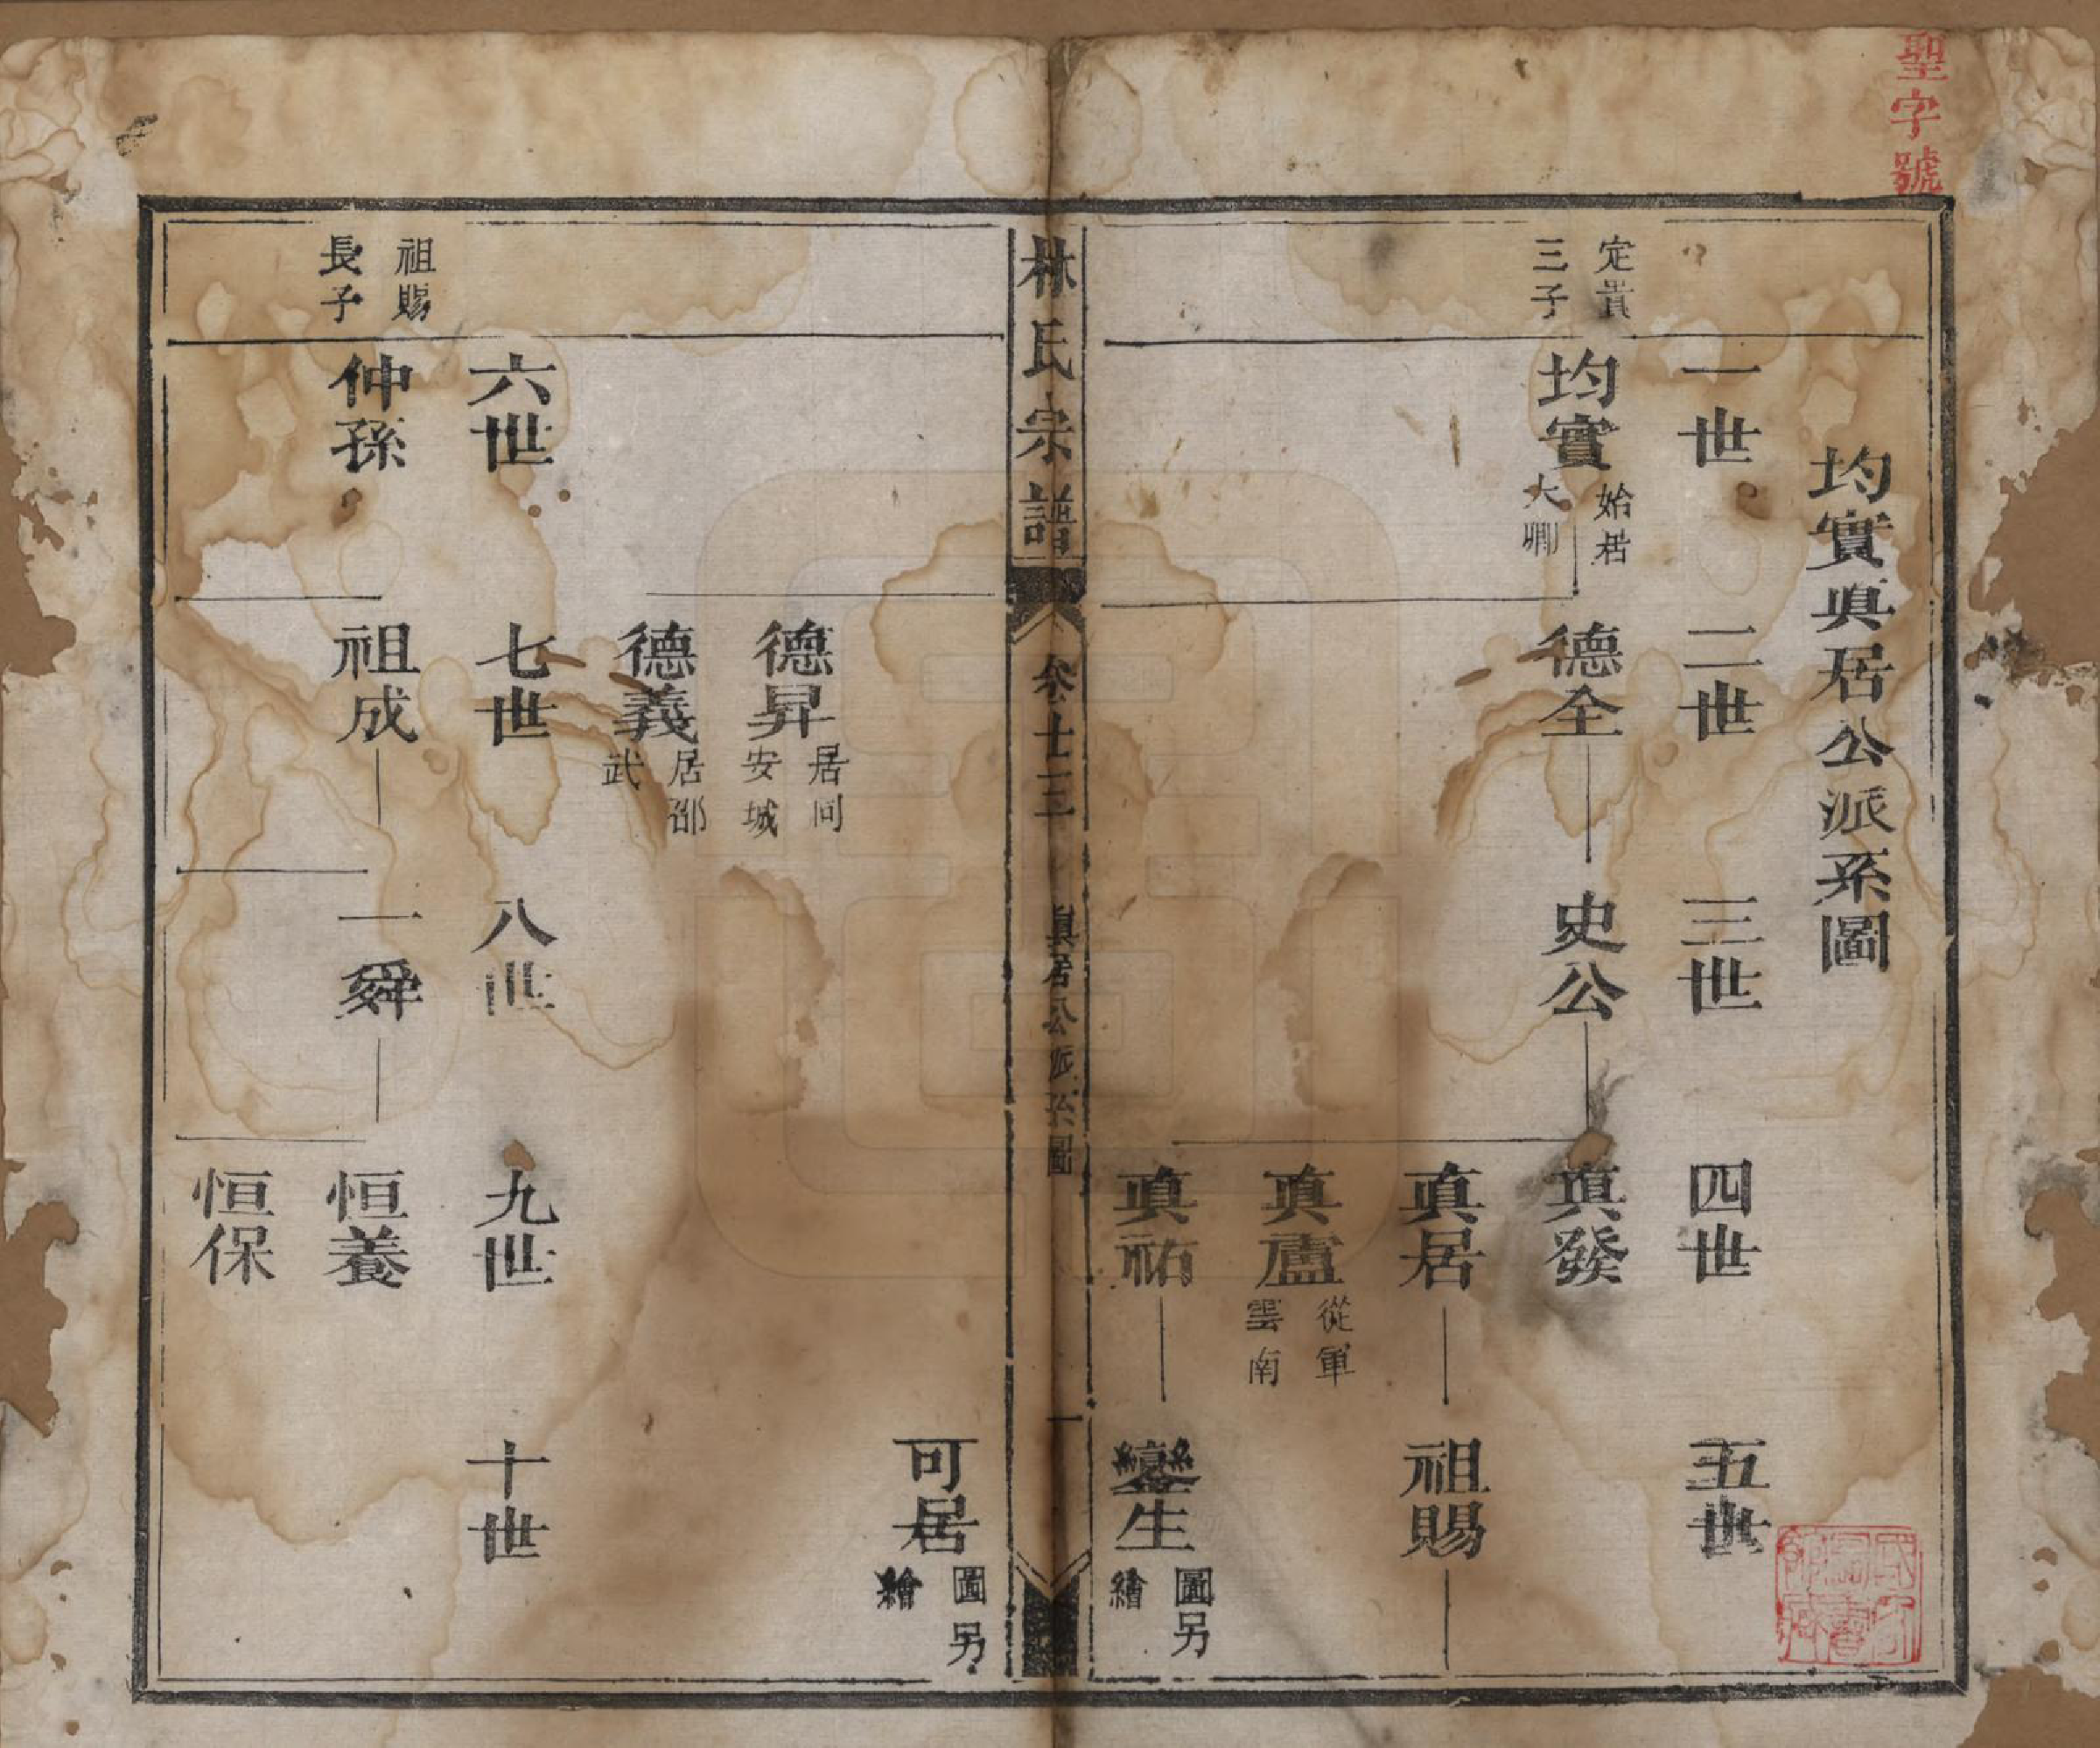 聖字號
均實眞居公派系圖
一世
二世
三世
四世
五世
定貴
三子
均實
始居
大卿
德全
史公
眞發
眞居
祖賜
眞盧
從軍
雲南
眞祐
鑾生
圖另
繪
林氏宗譜
卷十三
眞居公派系圖
一
可居
圖另
繪
德昇
居同
安城
德義
居邵
武
六世
七世
八世
九世
十世
祖賜
長子
仲孫
祖成
一舜
恒養
恒保